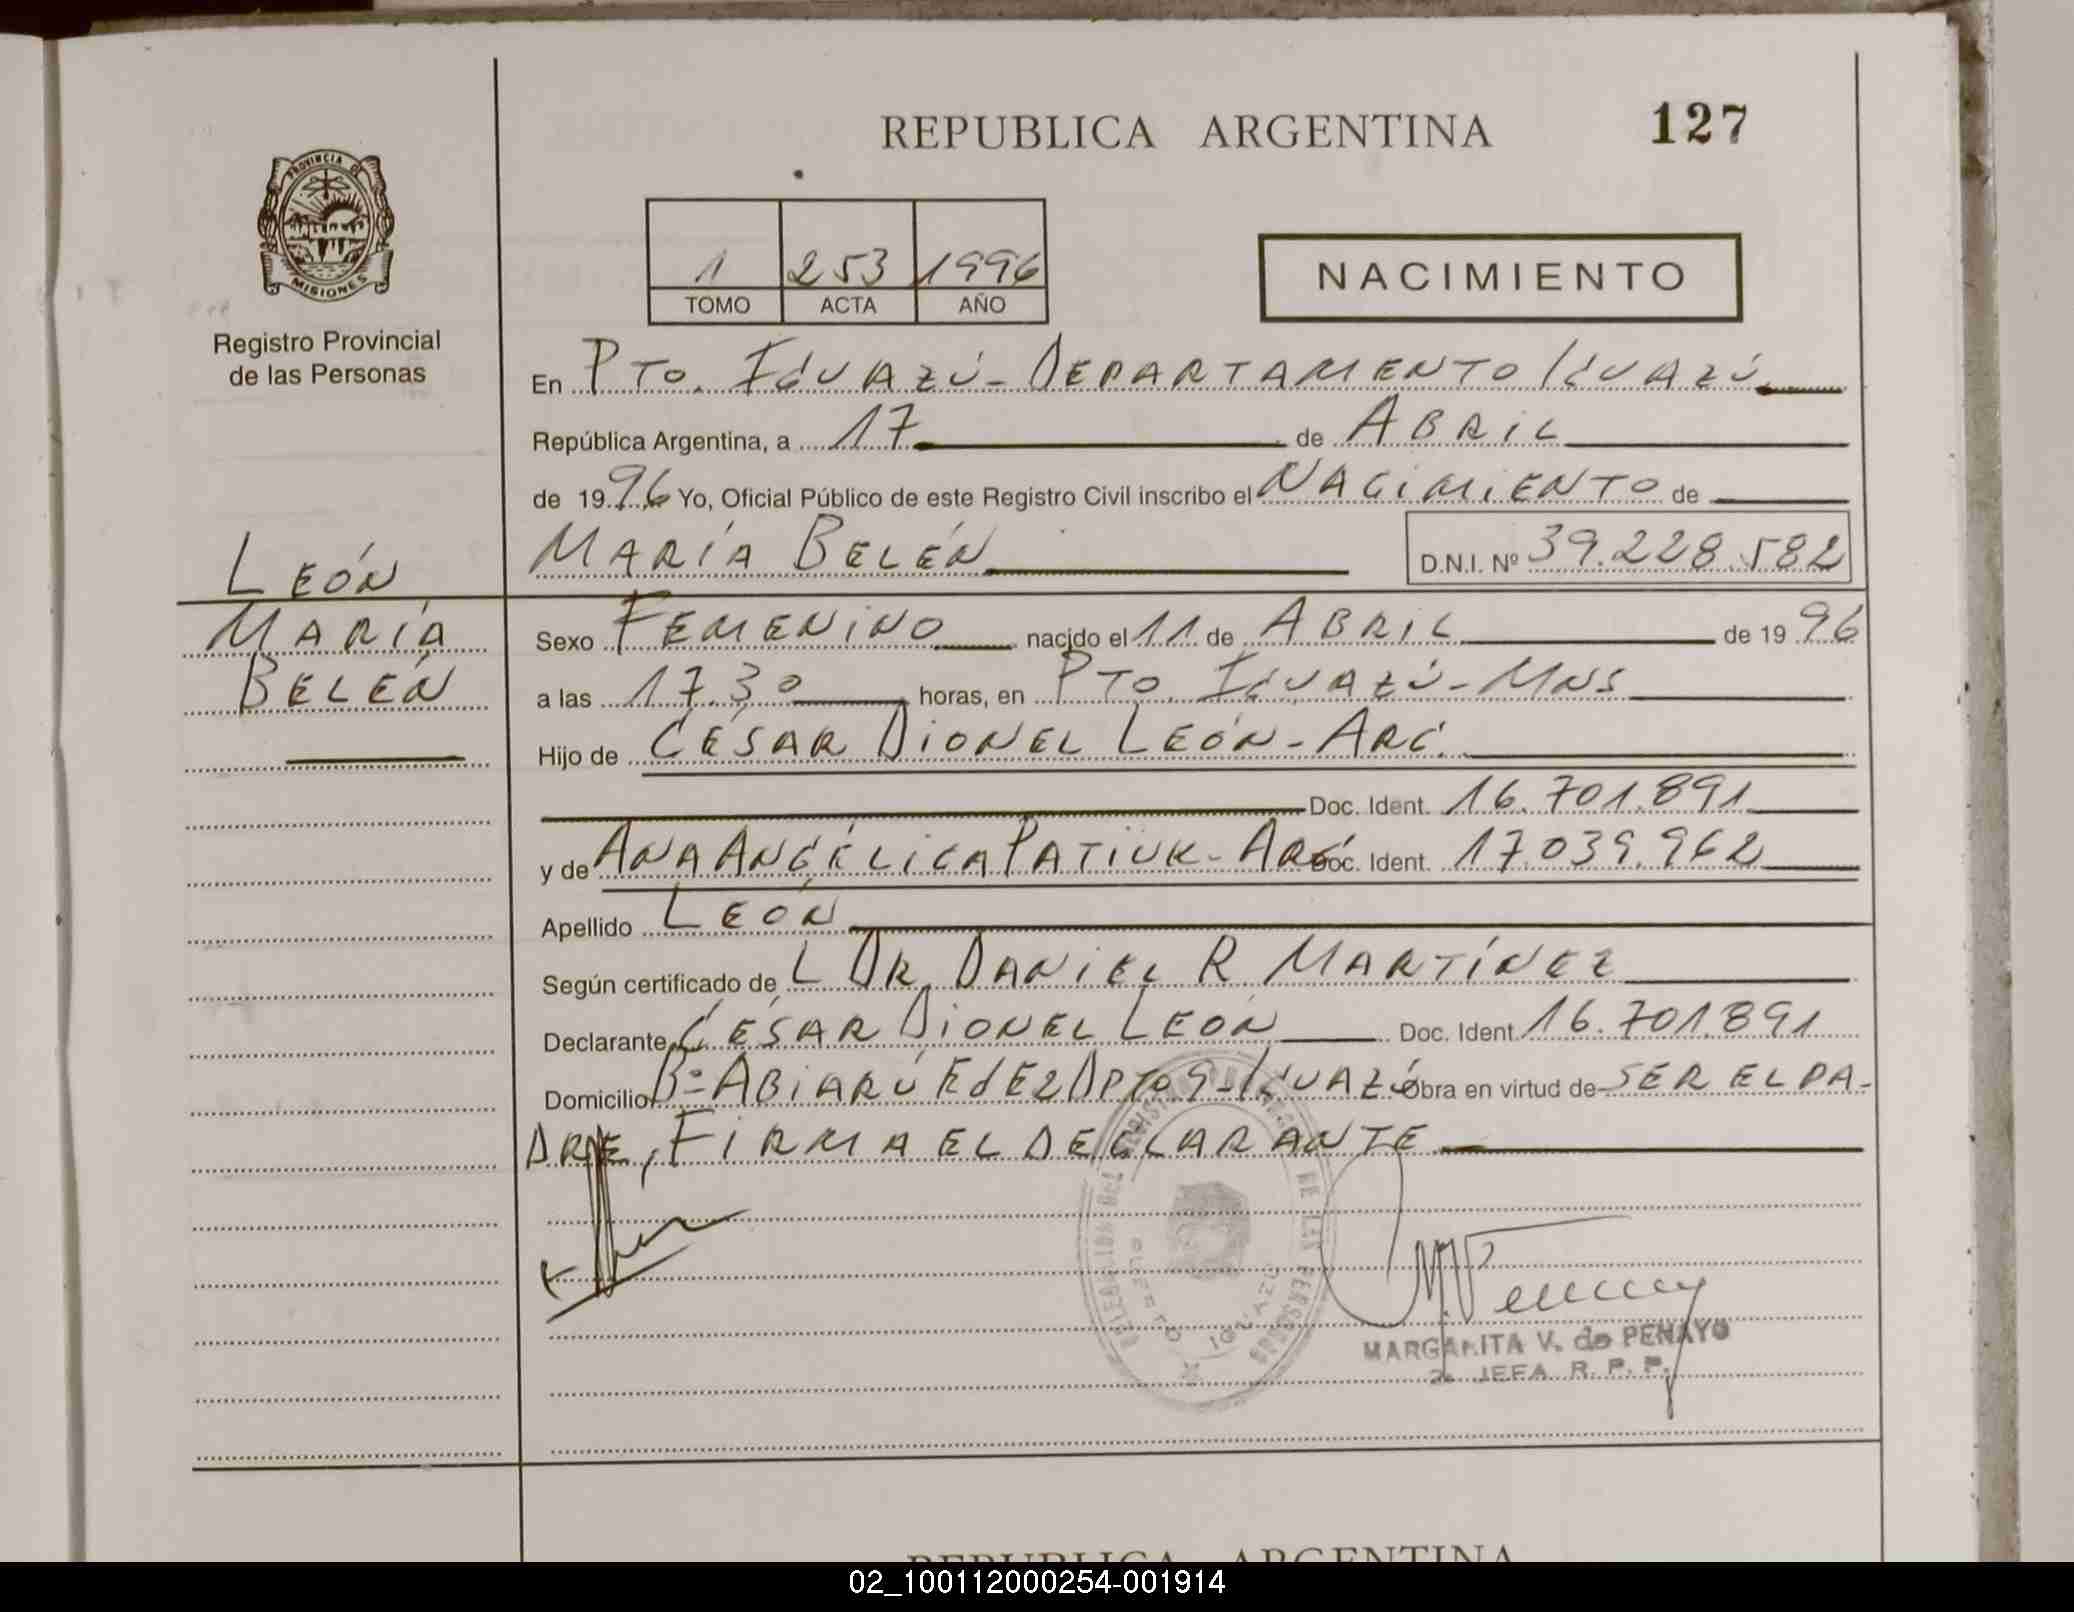 REPUBLICA ARGENTINA
127
PROVINCIA DE
MISIONES
Registro Provincial
de las Personas
1 253 1996
TOMO ACTA AÑO
NACIMIENTO
En PTO. IGUAZÚ - DEPARTAMENTO IGUAZÚ
República Argentina, a 17 de ABRIL
de 1996 Yo, Oficial Público de este Registro Civil inscribo el NACIMIENTO de
MARÍA BELÉN D.N.I. Nº 39.228.582
LEÓN
MARÍA
BELÉN
Sexo FEMENINO nacido el 11 de ABRIL de 1996
a las 17.30 horas, en PTO. IGUAZÚ - MNS
Hijo de CÉSAR DIONEL LEÓN - ARG.
Doc. Ident. 16.701.891
y de ANA ANGÉLICA PATIUK - ARG Doc. Ident. 17.039.962
Apellido LEÓN
Según certificado de L DR. DANIEL R MARTÍNEZ
Declarante CÉSAR DIONEL LEÓN Doc. Ident. 16.701.891
Domicilio Bº ABIARÚ Ed E2 DPTO 9 - IGUAZÚ Obra en virtud de SER EL PA-
DRE, FIRMA EL DECLARANTE
MARGARITA V. de PENAYO
2. JEFA R. P. P.
REPUBLICA ARGENTINA
02_100112000254-001914